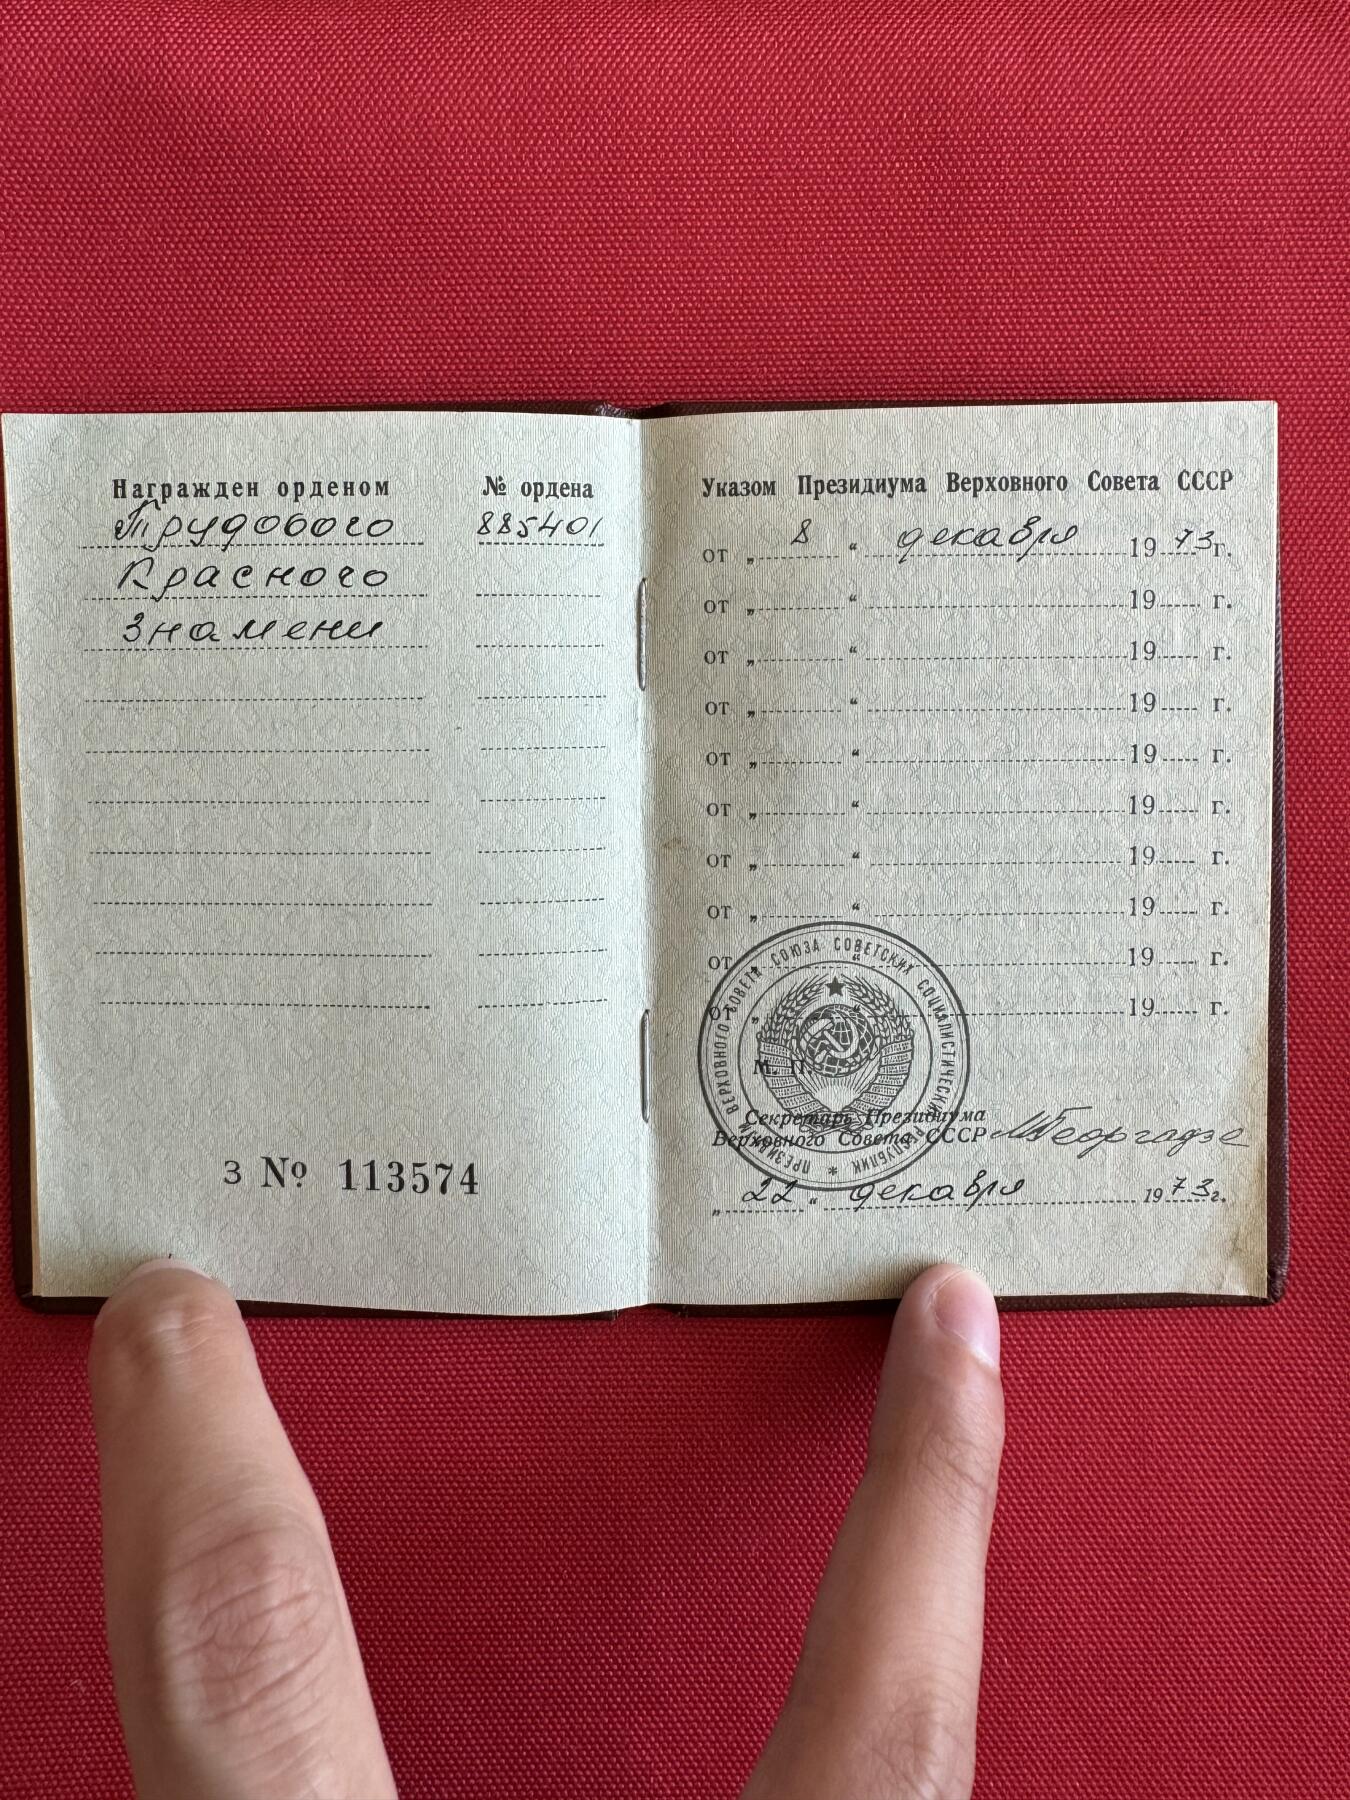 Награжден орденом
Трудового
Красного
Знамени
№ ордена
885401
З № 113574
Указом Президиума Верховного Совета СССР
от „ 8 “ декабря 19 73 г.
от „ “ 19 г.
от „ “ 19 г.
от „ “ 19 г.
от „ “ 19 г.
от „ “ 19 г.
от „ “ 19 г.
от „ “ 19 г.
от „ “ 19 г.
от „ “ 19 г.
ПРЕЗИДИУМ ВЕРХОВНОГО СОВЕТА СОЮЗА СОВЕТСКИХ СОЦИАЛИСТИЧЕСКИХ РЕСПУБЛИК *
М. П.
Секретарь Президиума
Верховного Совета СССР МГеоргадзе
„ 22 “ декабря 19 73 г.